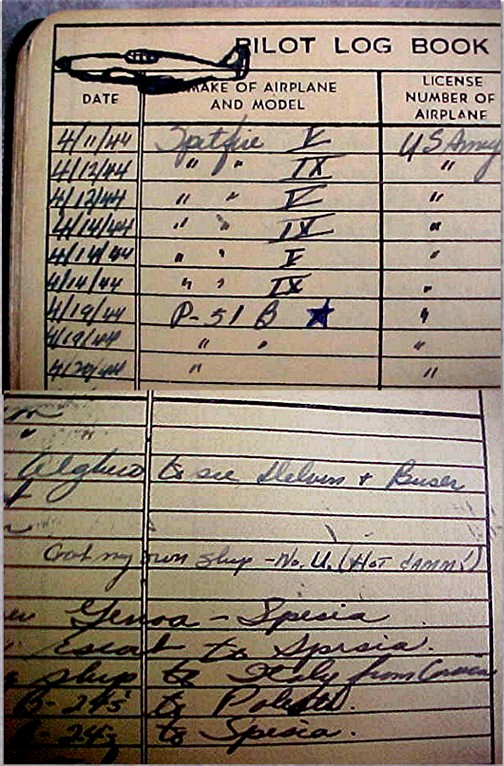 PILOT LOG BOOK
DATE MAKE OF AIRPLANE AND MODEL LICENSE NUMBER OF AIRPLANE
4/11/44 Spitfire V US Army
4/12/44 " " IX "
4/12/44 " " V "
4/14/44 " " IX "
4/14/44 " " V "
4/14/44 " " IX "
4/19/44 P-51 B ★ "
4/19/44 " " "
4/20/44 " "
" "
Alghero to see & Buser
Got my own ship - No. U. (HOT dAMM!)
Genoa - Spesia
Escort to Spesia.
ship to Italy from
B-24s to
24s to Spesia.